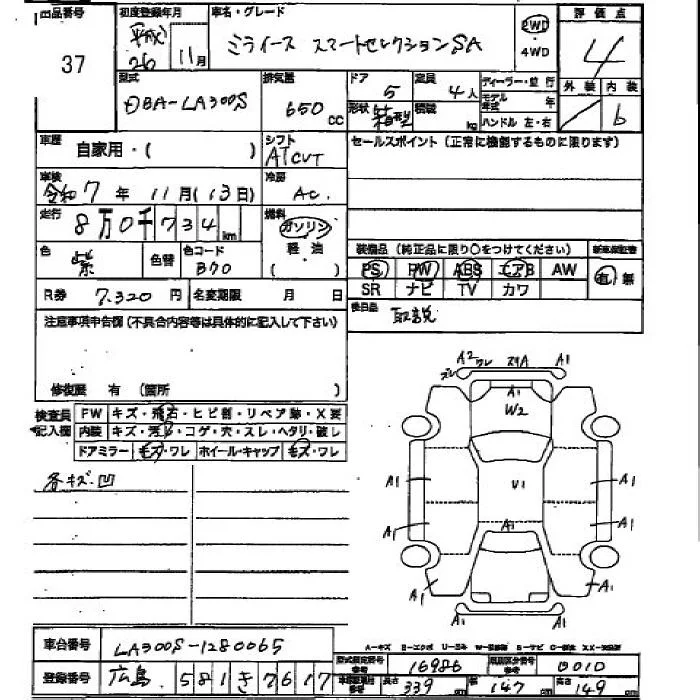 出品番号 初度登録年月 車名・グレード 評価点
37 平成26 11月 ミライース スマートセレクションSA 2WD ・4WD 4
型式 排気量 ドア 定員 ディーラー・並行 外装 内装
DBA-LA300S 650cc 5 4人 モデル年式 年 b
形状 箱型 積載 kg ハンドル 左・右
車歴 自家用・( ) シフト ATCVT セールスポイント(正常に機能するものに限ります)
車検 令和7年 11月(13日) 冷房 AC.
走行 8万0千734km 燃料 ガソリン 軽油 ( )
装備品(純正品に限り○をつけてください) 新車保証書
色 紫 色替 色コード B70 PS PW ABS エアB AW 有・無
R券 7.320円 名変期限 月 日 SR ナビ TV カワ
後日品 取説
注意事項申告欄(不具合内容等は具体的に記入して下さい)
修復歴 有(箇所 )
検査員記入欄 FW キズ・飛石・ヒビ割・リペア跡・X要
内装 キズ・汚れ・コゲ・穴・スレ・ヘタリ・破レ
ドアミラー キズ・ワレ ホイール・キャップ キズ・ワレ
各キズ.凹
A2 ワレ A1
ズレ
A1
W2
A1 U1 A1
A1 A1 A1
A1 A1
A-キズ
車台番号 LA300S-1280065
登録番号 広島 581 き 7617
型式指定番号 16986 類別区分番号 0010
長さ 339cm 幅 147cm 高さ 149cm